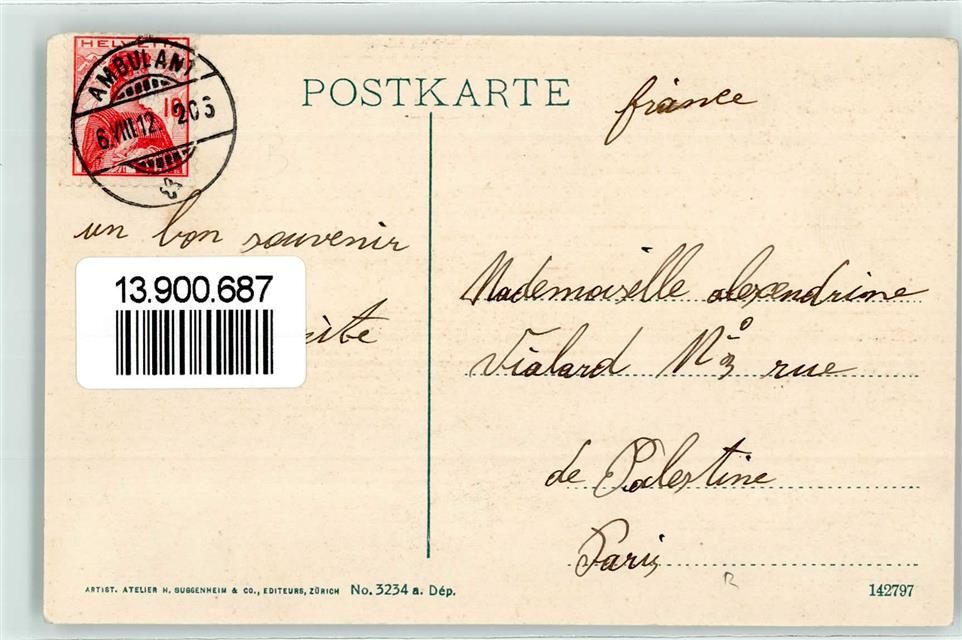 HELVETIA
AMBULANT
10
6.VIII.12. 206
POSTKARTE
france
un bon souvenir
13.900.687
Mademoiselle alexendrine
Vialard N° 3 rue
de Palestine
Paris
R
ARTIST. ATELIER H. GUGGENHEIM & CO., EDITEURS, ZÜRICH No. 3234 a. Dép.
142797